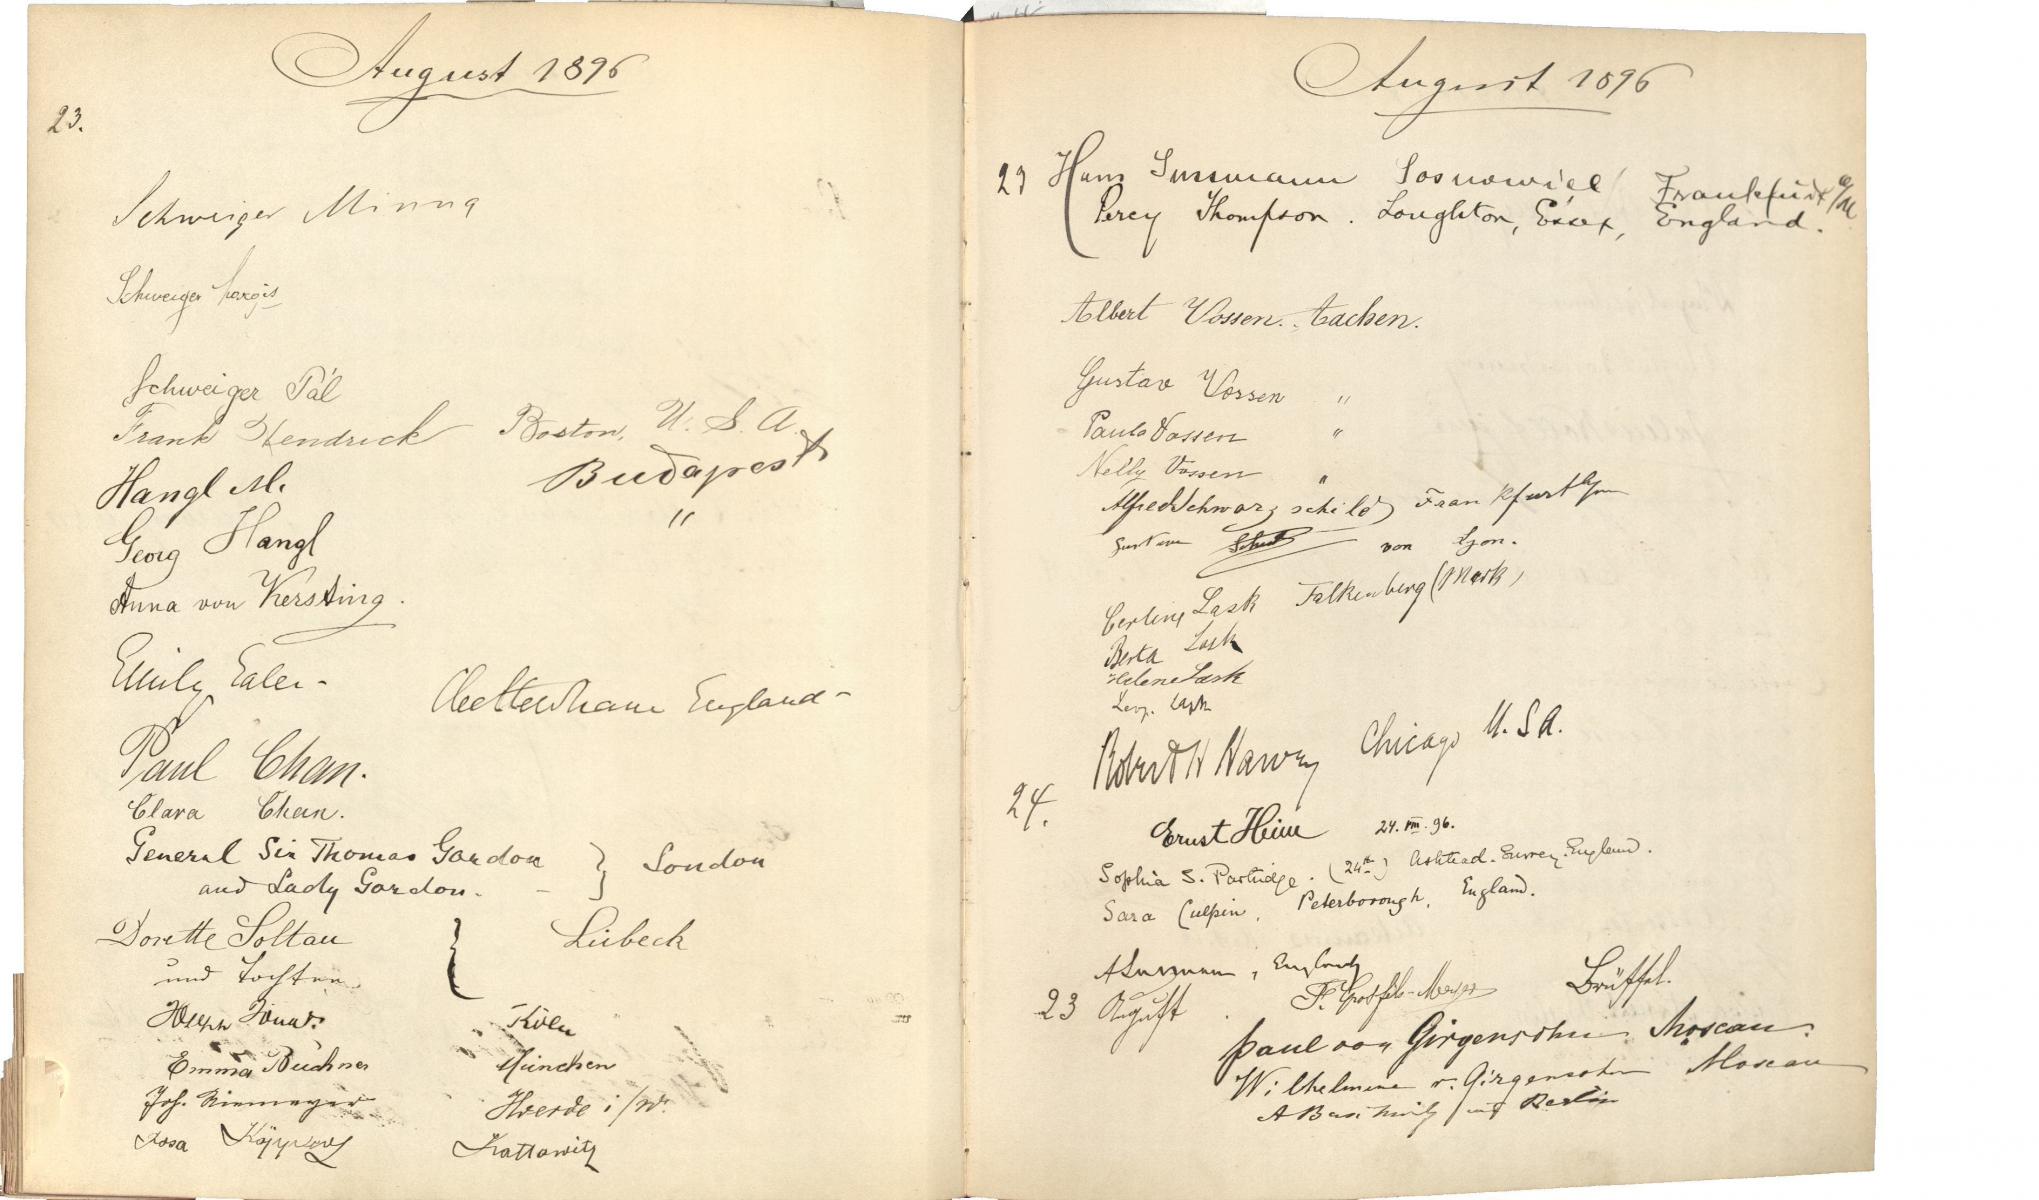 August 1896
23.
Schweiger Minna
Schweiger
Schweiger Pál
Frank Hendrick Boston, U. S. A.
Hangl M. Budapest
Georg Hangl "
Anna von Kersting.
Emily England -
Paul Chan.
Clara Chan.
General Sir Thomas Gordon } London
and Lady Gordon. -
Dorette Soltau { Lübeck
und Tochter
Köln
Emma Buchner München
Joh. Niemeyer Hoerde i/W.
Rosa Kattowitz
August 1896
23 Hans Sussmann Sosnowice Frankfurt a/M
Percy Thompson. Loughton, Essex, England.
Albert Vossen. Aachen.
Gustav Vossen "
Paula Vossen "
Nelly Vossen "
Alfred Schwarzschild Frankfurt
Gustav von Lyon.
Lask Falkenberg (Mark)
Berta Lask
Helene Lask
Leop. Lask
Robert H Chicago U. S A.
24.
Ernst Heim 24. VIII. 96.
Sophia S. Partridge. (24th) Ashtead. Surrey. England.
Sara Culpin, Peterborough, England.
England
23 August F. Brüssel.
Paul von Girgensohn Moscau.
Wilhelmine v. Girgensohn Moscau
A Berlin